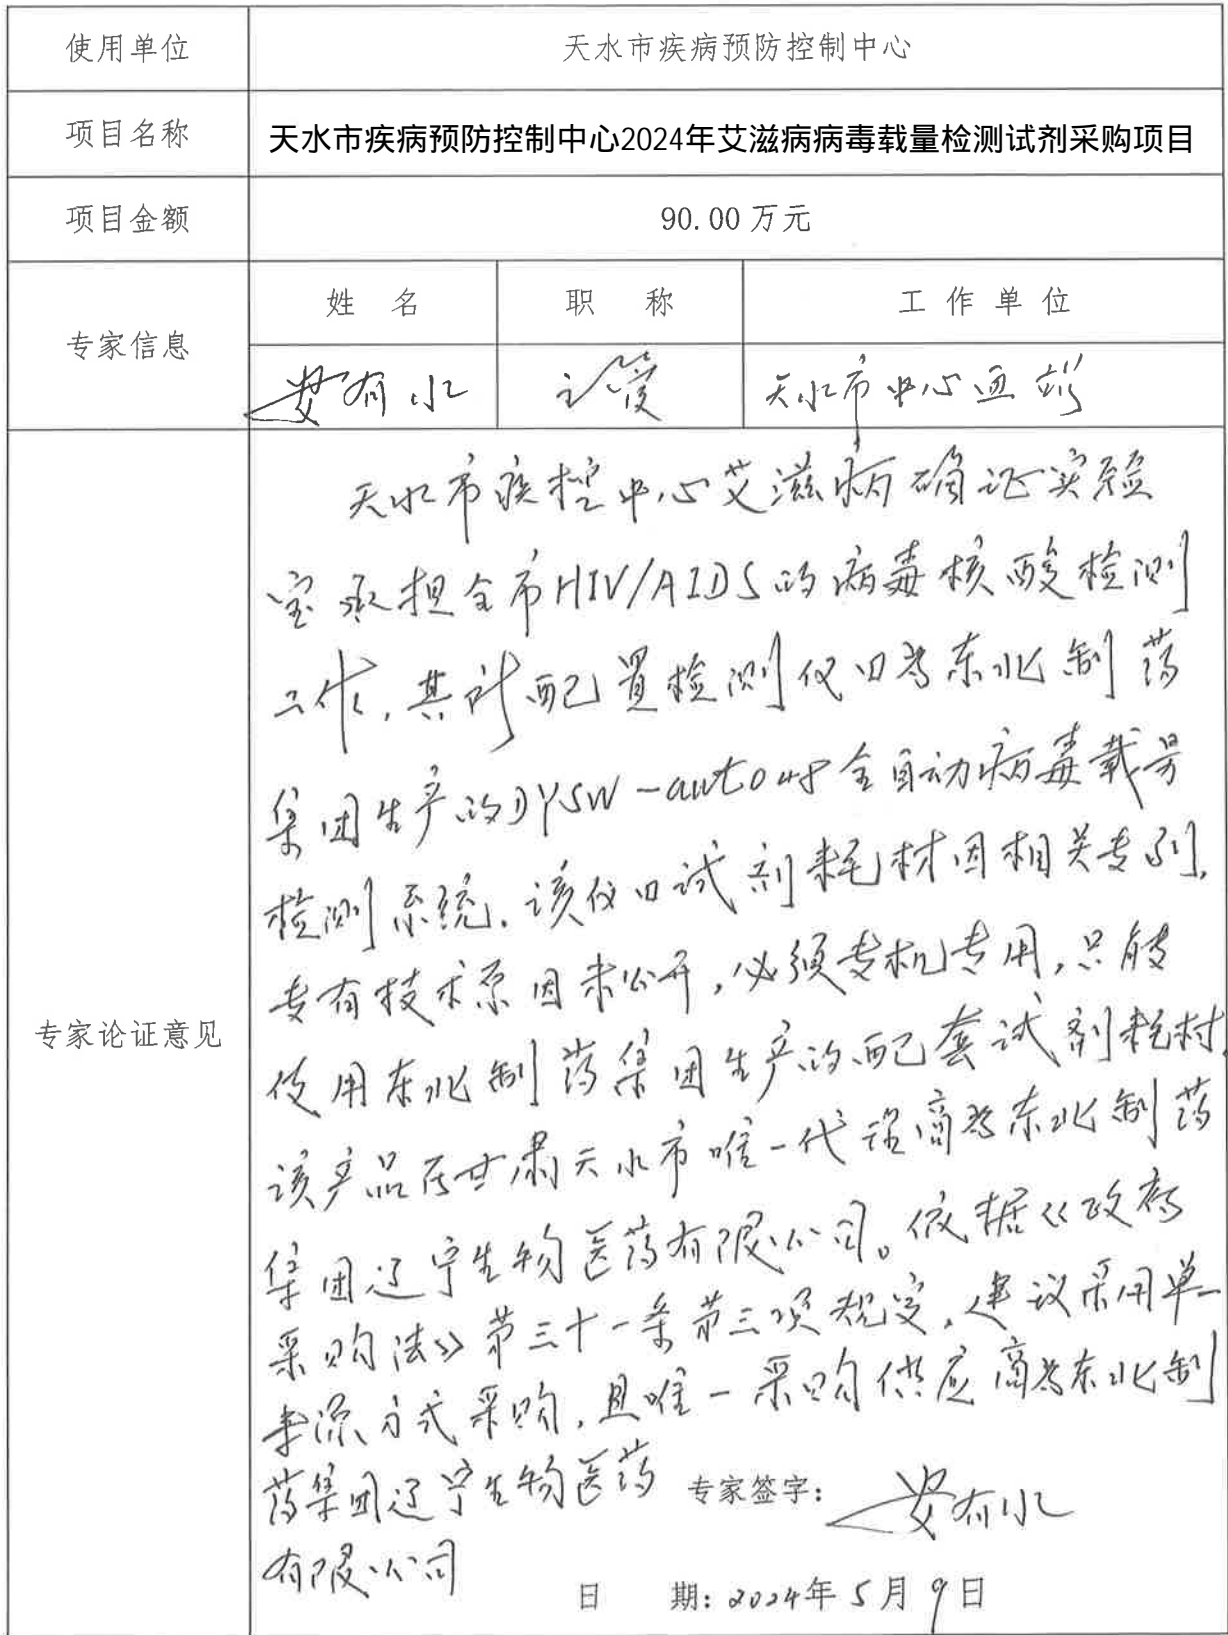 使用单位 天水市疾病预防控制中心
项目名称 天水市疾病预防控制中心2024年艾滋病病毒载量检测试剂采购项目
项目金额 90.00万元
专家信息 姓 名 职 称 工作单位
安有水 主管 天水市中心血站
专家论证意见
天水市疾控中心艾滋病确证实验
室承担全市HIV/AIDS的病毒核酸检测
工作,其所配置检测仪口为东北制药
集团生产的DYSW-auto48全自动病毒载量
检测系统.该仪口试剂耗材因相关专利,
专有技术原因未公开,必须专机专用,只能
使用东北制药集团生产的配套试剂耗材,
该产品在甘肃天水市唯一代理商为东北制药
集团辽宁生物医药有限公司。依据《政府
采购法》第三十一条第三项规定,建议采用单一
来源方式采购,且唯一采购供应商为东北制
药集团辽宁生物医药
有限公司
专家签字: 安有水
日 期: 2024年5月9日